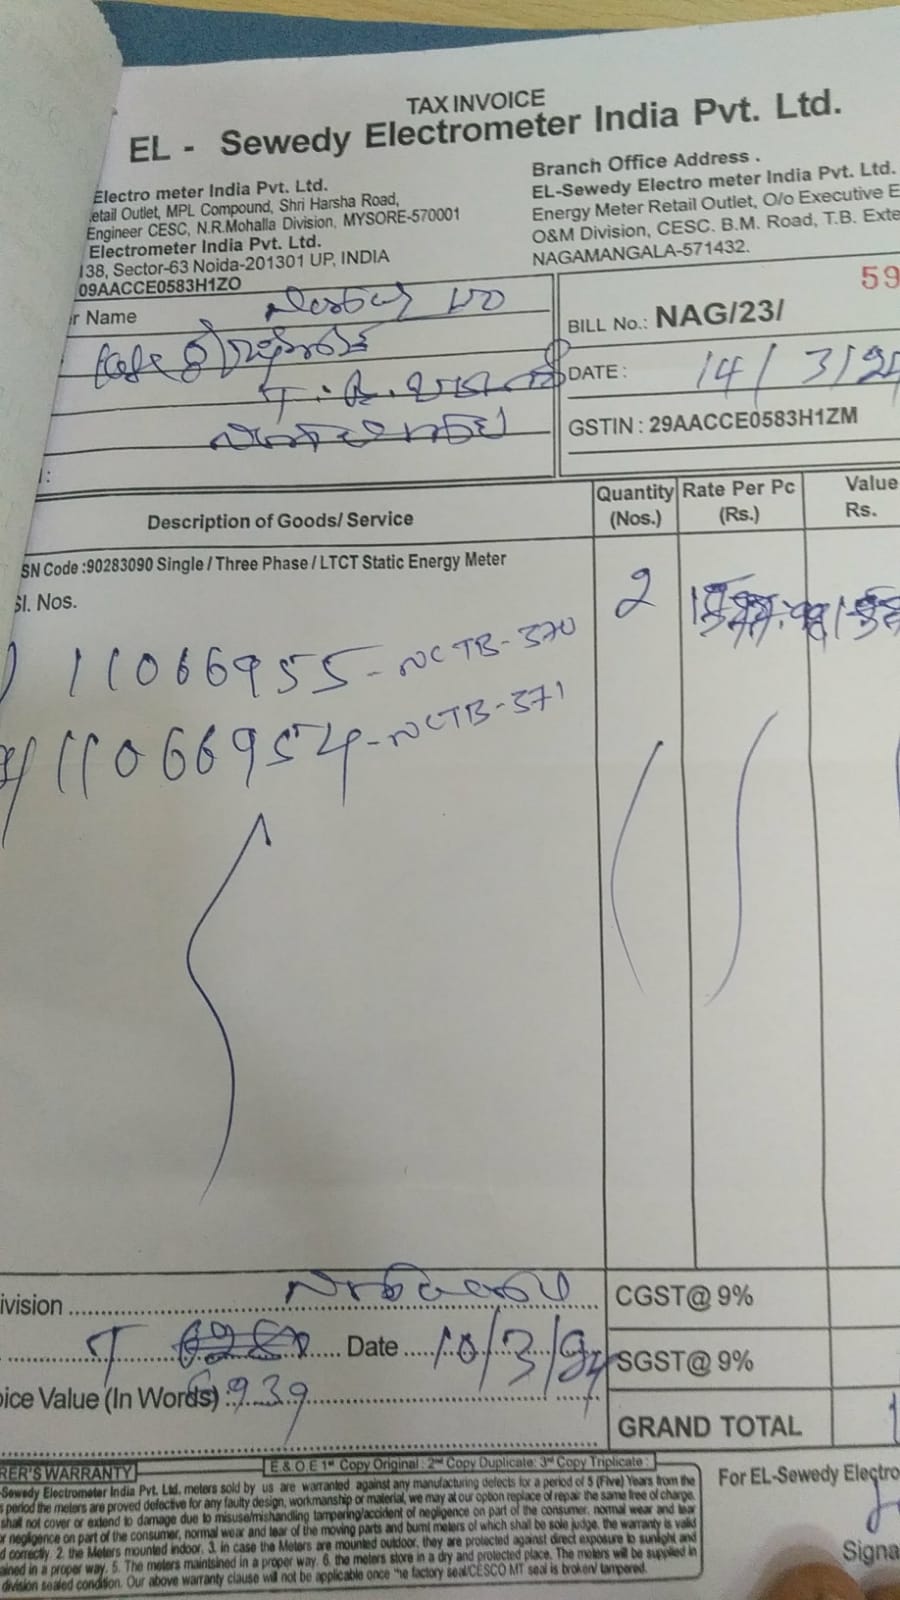 TAX INVOICE
EL - Sewedy Electrometer India Pvt. Ltd.
Electro meter India Pvt. Ltd.
etail Outlet, MPL Compound, Shri Harsha Road,
Engineer CESC, N.R.Mohalla Division, MYSORE-570001
Electrometer India Pvt. Ltd.
138, Sector-63 Noida-201301 UP, INDIA
09AACCE0583H1ZO
Branch Office Address .
EL-Sewedy Electro meter India Pvt. Ltd.
Energy Meter Retail Outlet, O/o Executive E
O&M Division, CESC. B.M. Road, T.B. Exte
NAGAMANGALA-571432.
r Name
59
BILL No.: NAG/23/
DATE : 14/3/24
GSTIN : 29AACCE0583H1ZM
Description of Goods/ Service
Quantity (Nos.)
Rate Per Pc (Rs.)
Value Rs.
SN Code :90283090 Single / Three Phase / LTCT Static Energy Meter
Sl. Nos.
2
11066955-NCTB-370
11066954-NCTB-371
ivision
CGST@ 9%
Date 10/3/24
SGST@ 9%
oice Value (In Words) : 939
GRAND TOTAL
RER'S WARRANTY
E & O E 1st Copy Original : 2nd Copy Duplicate: 3rd Copy Triplicate :
Sewedy Electrometer India Pvt. Ltd. meters sold by us are warranted against any manufacturing defects for a period of 5 (Five) Years from the
period the meters are proved defective for any faulty design, workmanship or material, we may at our option replace of repair the same free of charge.
shall not cover or extend to damage due to misuse/mishandling tampering/accident of negligence on part of the consumer, normal wear and tear
r negligence on part of the consumer, normal wear and tear of the moving parts and burnt meters of which shall be sole judge. the warranty is valid
d correctly. 2. the Meters mounted indoor. 3. in case the Meters are mounted outdoor, they are protected against direct exposure to sunlight and
ained in a proper way. 5. The meters maintsined in a proper way. 6. the meters store in a dry and protected place. The meters will be supplied in
division sealed condition. Our above warranty clause will not be applicable once the factory seal/CESCO MT seal is broken/ tampered.
For EL-Sewedy Electro
Signa